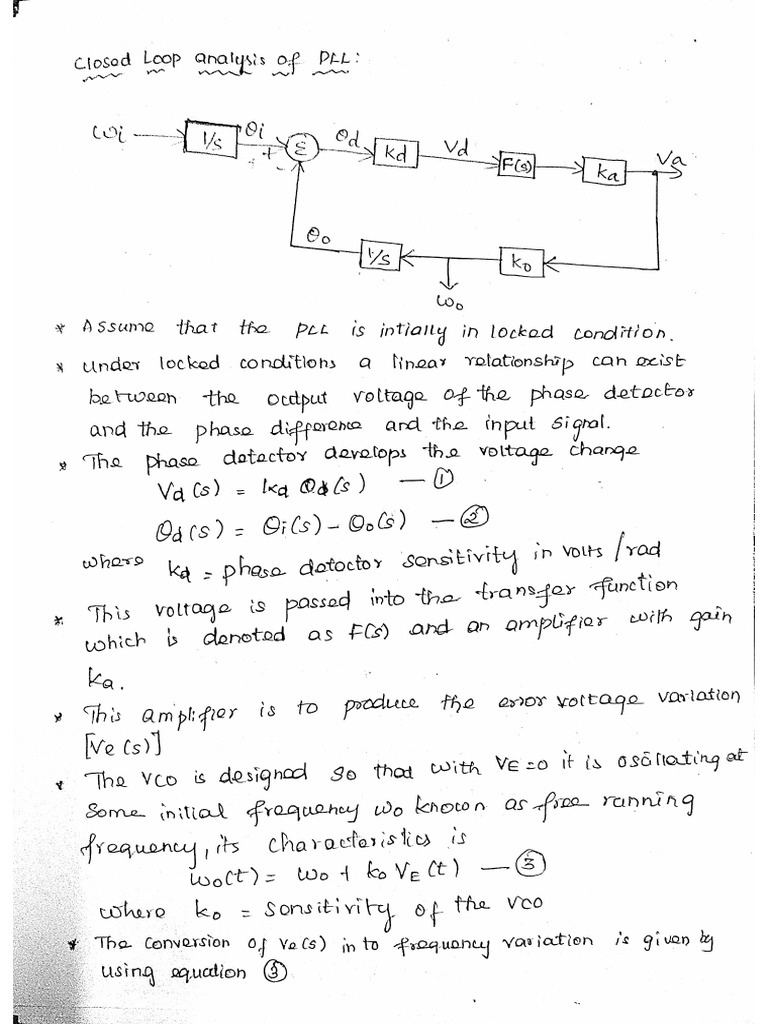 Closed Loop analysis of PLL:
ωi 1/s θi + - Σ θd kd Vd F(s) ka Va
θo 1/s ko
ωo
* Assume that the PLL is intially in locked condition.
* under locked conditions a linear relationship can exist
between the output voltage of the phase detector
and the phase difference and the input signal.
* The phase detector develops the voltage change
Vd(s) = kd θd(s) — ①
θd(s) = θi(s) - θo(s) — ②
where kd = phase detector sensitivity in volts/rad
* This voltage is passed into the transfer function
which is denoted as F(s) and an amplifier with gain
ka.
* This amplifier is to produce the error voltage variation
[Ve(s)]
* The VCO is designed so that with VE=0 it is oscillating at
some initial frequency ωo known as free running
frequency, its characteristics is
ωo(t) = ωo + ko VE(t) — ③
where ko = sensitivity of the VCO
* The conversion of Ve(s) in to frequency variation is given by
using equation ③